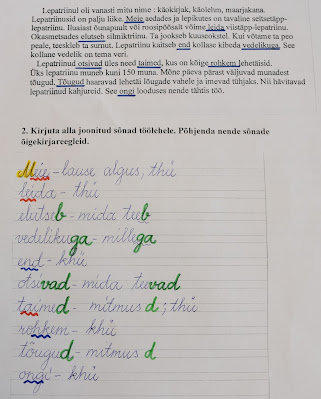 Lepatriinul oli vanasti mitu nime : käokirjak, käolehm, maarjakana.
Lepatriinusid on palju liike. Meie aedades ja lepikutes on tavaline seitsetäpp-
lepatriinu. Iluaiast õunapuult või roosipõõsalt võime leida viistäpp-lepatriinu.
Okasmetsades elutseb silmiktriinu. Ta jookseb kuuseokstel. Kui võtame ta peo
peale, teeskleb ta surnut. Lepatriinu kaitseb end kollase kibeda vedelikuga. See
kollane vedelik on tema veri.
Lepatriinud otsivad üles need taimed, kus on kõige rohkem lehetäisid.
Üks lepatriinu muneb kuni 150 muna. Mõne päeva pärast väljuvad munadest
tõugud. Tõugud haaravad lehetäi lõugade vahele ja imevad tühjaks. Nii hävitavad
lepatriinud kahjureid. See ongi looduses nende tähtis töö.
2. Kirjuta alla joonitud sõnad töölehele. Põhjenda nende sõnade
õigekirjareegleid.
Meie – lause algus, thü
leida – thü
elutseb – mida teeb
vedelikuga – millega
end – khü
otsivad – mida teevad
taimed – mitmus d ; thü
rohkem – khü
tõugud – mitmus d
ongi – khü